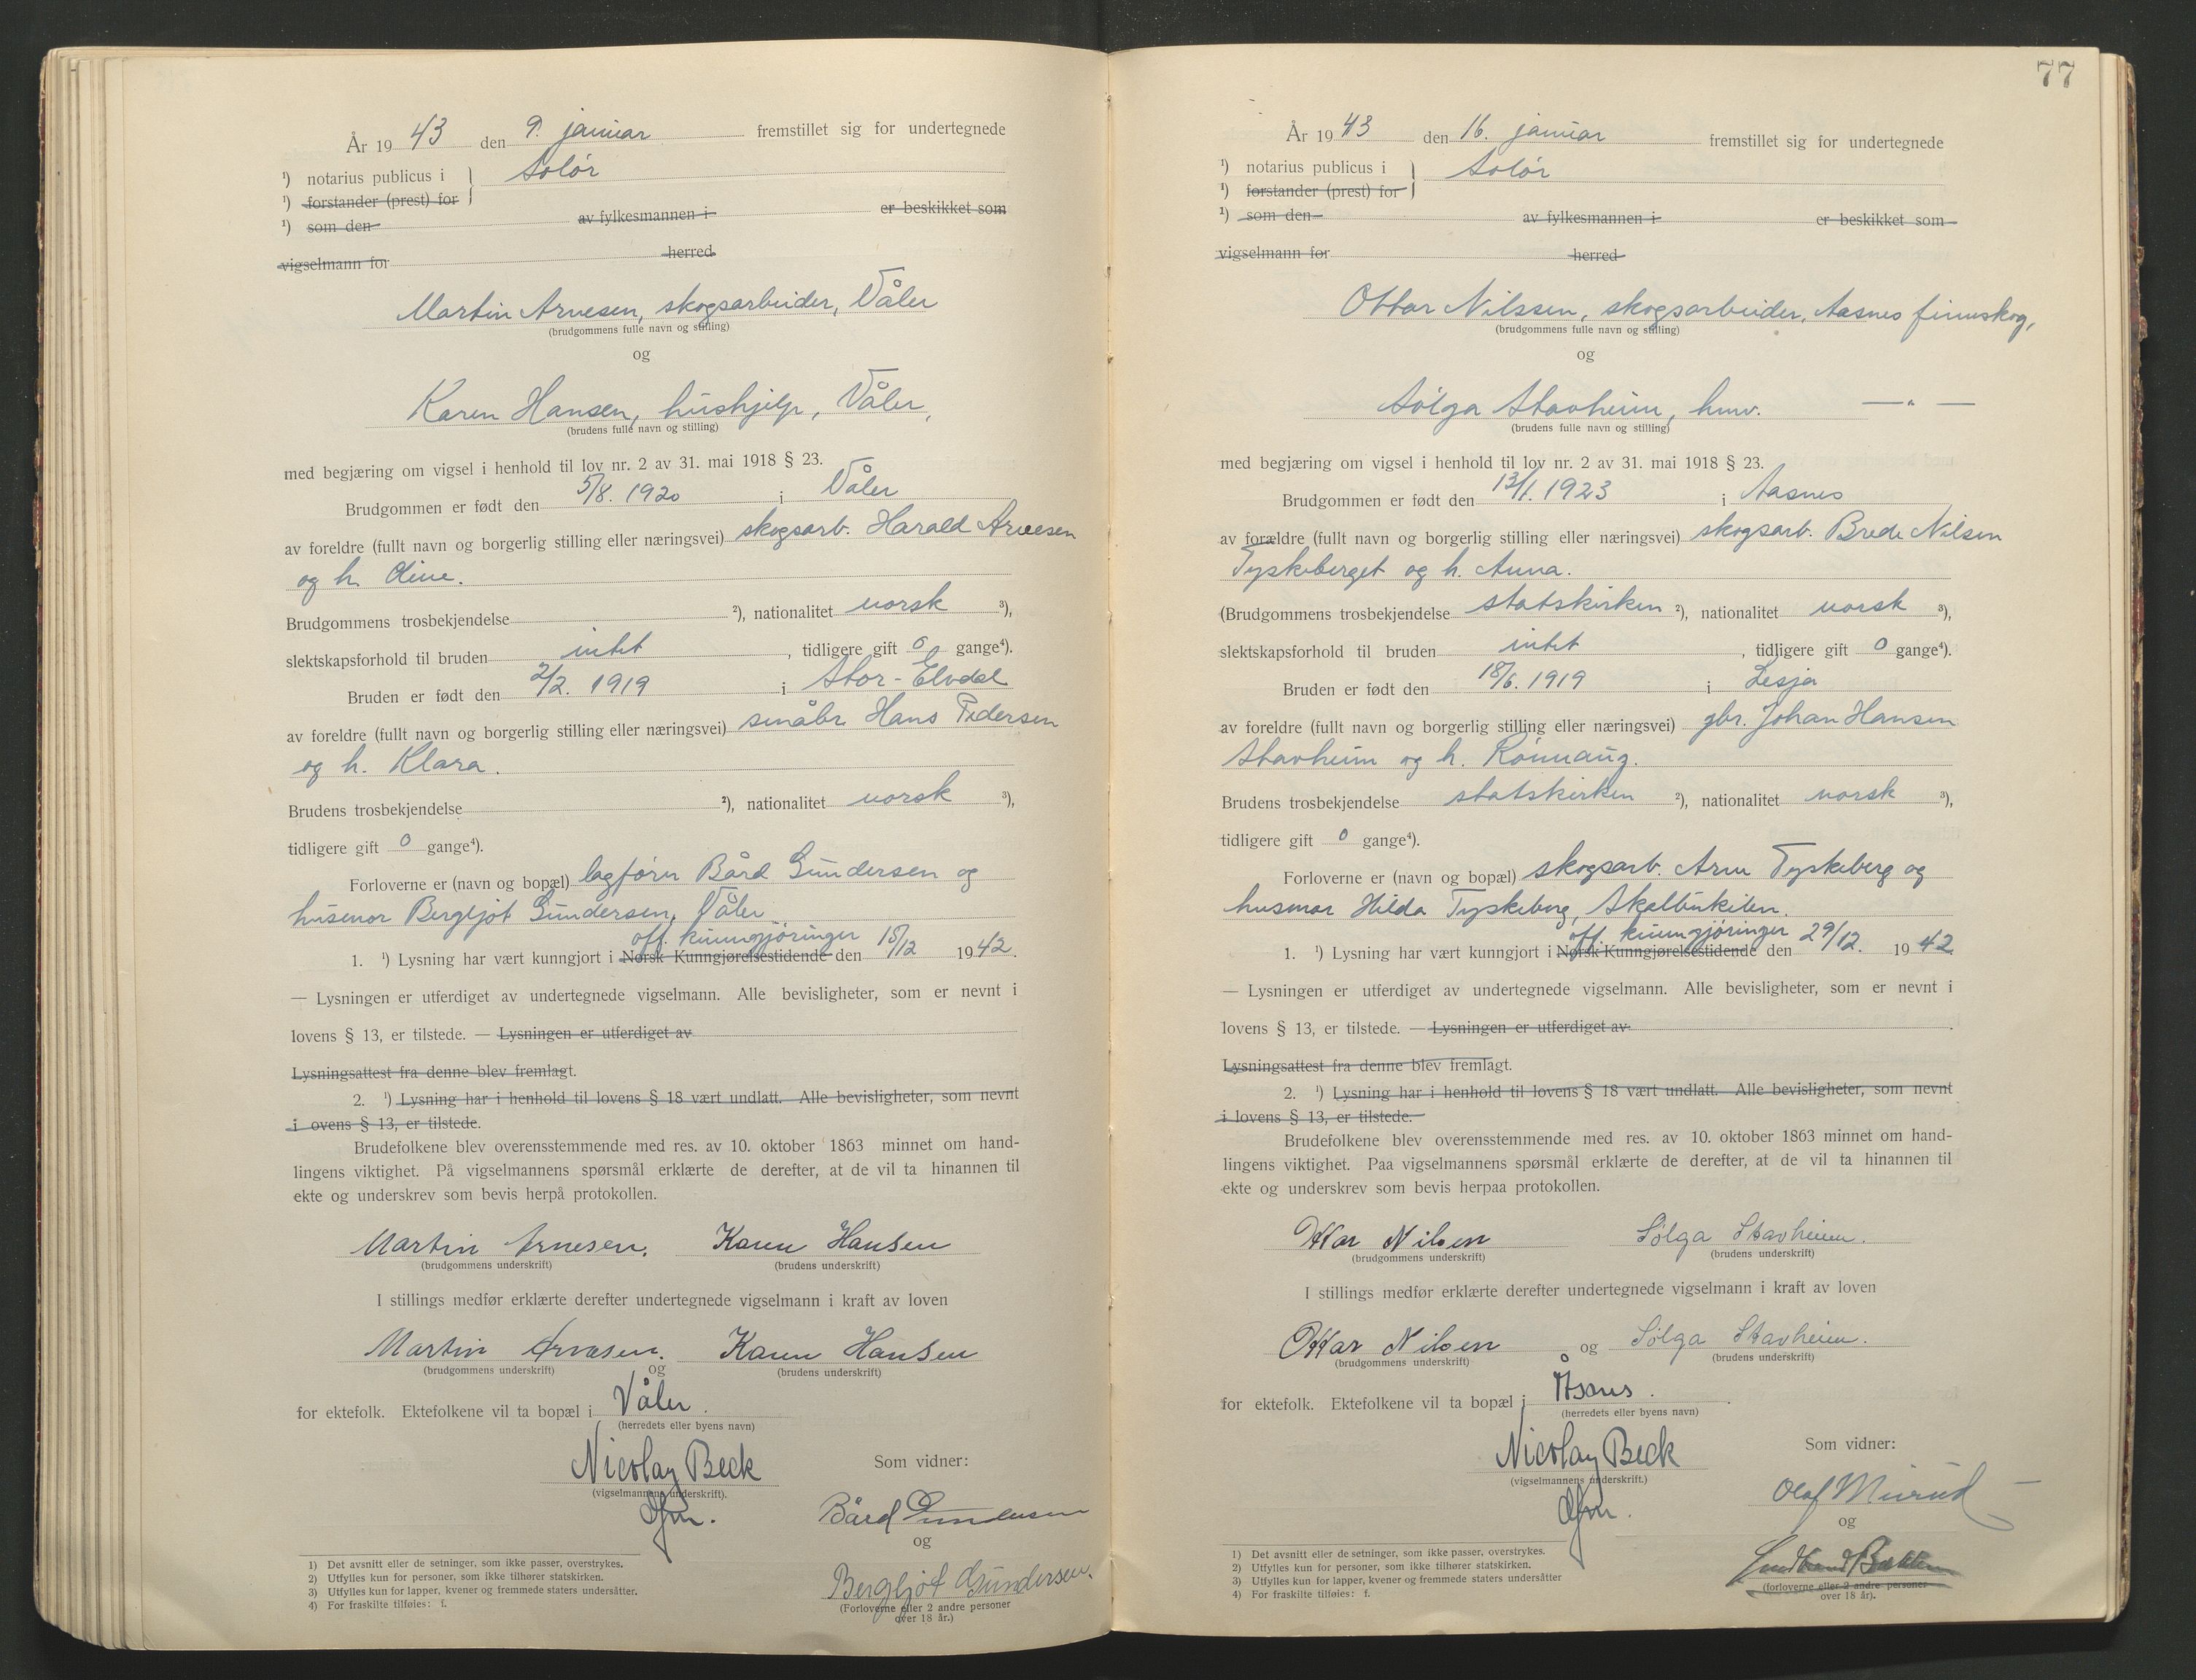 År 19 43 den 9. januar fremstillet sig for undertegnede
¹) notarius publicus i } Solør
¹) forstander (prest) for
¹) som den av fylkesmannen i er beskikket som
vigselmann for herred
Martin Arnesen, skogsarbeider, Våler
(brudgommens fulle navn og stilling)
og
Karen Hansen, hushjelp, Våler,
(brudens fulle navn og stilling)
med begjæring om vigsel i henhold til lov nr. 2 av 31. mai 1918 § 23.
Brudgommen er født den 5/8. 1920 i Våler
av foreldre (fullt navn og borgerlig stilling eller næringsvei) skogsarb. Harald Arnesen
og h. Oline.
Brudgommens trosbekjendelse ²), nationalitet norsk ³),
slektskapsforhold til bruden intet, tidligere gift 0 gange⁴).
Bruden er født den 2/2. 1919 i Stor-Elvdal
av foreldre (fullt navn og borgerlig stilling eller næringsvei) småbr. Hans Pedersen
og h. Klara.
Brudens trosbekjendelse ²), nationalitet norsk ³),
tidligere gift 0 gange⁴).
Forloverne er (navn og bopæl) lagfører Bård Gundersen og
husmor Bergljot Gundersen, Våler.
off. kunngjøringer
1. ¹) Lysning har vært kunngjort i Norsk Kunngjørelsestidende den 15/12 1942.
— Lysningen er utferdiget av undertegnede vigselmann. Alle bevisligheter, som er nevnt i
lovens § 13, er tilstede. — Lysningen er utferdiget av
Lysningsattest fra denne blev fremlagt.
2. ¹) Lysning har i henhold til lovens § 18 vært undlatt. Alle bevisligheter, som nevnt
i ovens § 13, er tilstede.
Brudefolkene blev overensstemmende med res. av 10. oktober 1863 minnet om hand-
lingens viktighet. På vigselmannens spørsmål erklærte de derefter, at de vil ta hinannen til
ekte og underskrev som bevis herpå protokollen.
Martin Arnesen. Karen Hansen
(brudgommens underskrift) (brudens underskrift)
I stillings medfør erklærte derefter undertegnede vigselmann i kraft av loven
Martin Arnesen. og Karen Hansen
(brudgommens underskrift) (brudens underskrift)
for ektefolk. Ektefolkene vil ta bopæl i Våler.
(herredets eller byens navn)
Nicolay Beck
(vigselmannens underskrift).
Som vidner:
Bård Gundersen
og
Bergljot Gundersen.
(Forloverne eller 2 andre personer
over 18 år.)
1) Det avsnitt eller de setninger, som ikke passer, overstrykes.
2) Utfylles kun for personer, som ikke tilhører statskirken.
3) Utfylles kun for lapper, kvener og fremmede staters undersåtter.
4) For fraskilte tilføies: f.
77
År 19 43 den 16. januar fremstillet sig for undertegnede
¹) notarius publicus i } Solør
¹) forstander (prest) for
¹) som den av fylkesmannen i er beskikket som
vigselmann for herred
Ottar Nilssen, skogsarbeider, Aasnes finnskog,
(brudgommens fulle navn og stilling)
og
Sólga Stavheim, hmv. — " —
(brudens fulle navn og stilling)
med begjæring om vigsel i henhold til lov nr. 2 av 31. mai 1918 § 23.
Brudgommen er født den 13/1. 1923 i Aasnes
av forældre (fullt navn og borgerlig stilling eller næringsvei) skogsarb. Brede Nilsen
Tyskeberget og h. Anna.
(Brudgommens trosbekjendelse statskirken ²), nationalitet norsk ³),
slektskapsforhold til bruden intet, tidligere gift 0 gange⁴).
Bruden er født den 18/6. 1919 i Lesja
av foreldre (fullt navn og borgerlig stilling eller næringsvei) gbr. Johan Hansen
Stavheim og h. Rønnaug.
Brudens trosbekjendelse statskirken ²), nationalitet norsk ³),
tidligere gift 0 gange⁴).
Forloverne er (navn og bopæl) skogsarb. Arne Tyskeberg og
husmor Hilda Tyskeberg, Skalbukilen.
off. kunngjøringer
1. ¹) Lysning har vært kunngjort i Norsk Kunngjørelsestidende den 29/12. 1942
— Lysningen er utferdiget av undertegnede vigselmann. Alle bevisligheter, som er nevnt i
lovens § 13, er tilstede. — Lysningen er utferdiget av
Lysningsattest fra denne blev fremlagt.
2. ¹) Lysning har i henhold til lovens § 18 vært undlatt. Alle bevisligheter, som nevnt
i lovens § 13, er tilstede.
Brudefolkene blev overensstemmende med res. av 10. oktober 1863 minnet om hand-
lingens viktighet. Paa vigselmannens spørsmål erklærte de derefter, at de vil ta hinannen til
ekte og underskrev som bevis herpaa protokollen.
Ottar Nilsen Sólga Stavheim.
(brudgommens underskrift) (brudens underskrift)
I stillings medfør erklærte derefter undertegnede vigselmann i kraft av loven
Ottar Nilsen og Sólga Stavheim.
(brudgommens underskrift) (brudens underskrift)
for ektefolk. Ektefolkene vil ta bopæl i Åsnes.
(herredets eller byens navn)
Nicolay Beck
(vigselmannens underskrift.)
Som vidner:
Olaf Murud
og
(forloverne eller 2 andre personer
over 18 år).
1) Det avsnitt eller de setninger, som ikke passer, overstrykes.
2) Utfylles kun for personer, som ikke tilhører statskirken.
3) Utfylles kun for lapper, kvener og fremmede staters undersåtter
4) For fraskilte tilføies: f.